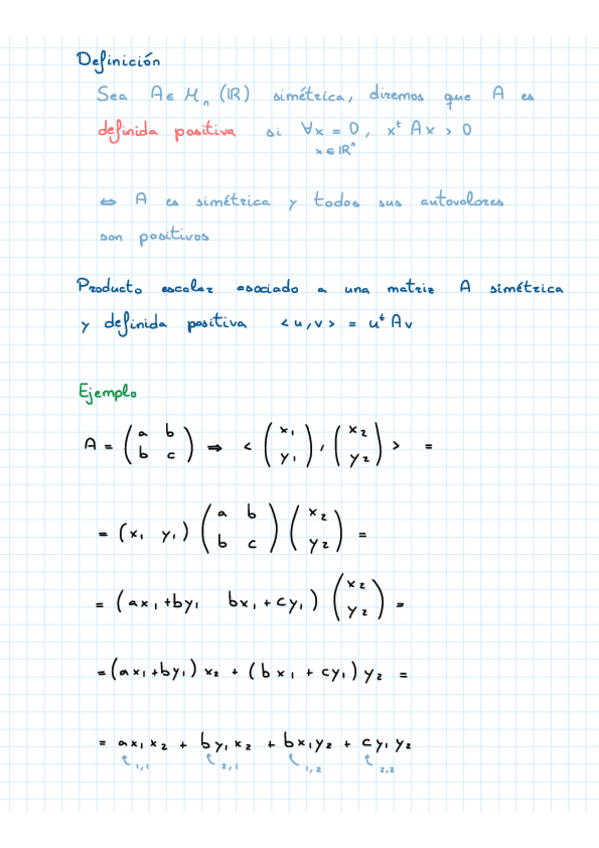 Definición
Sea A ∈ M_n (ℝ) simétrica, diremos que A es
definida positiva si ∀x = 0, xᵗ A x > 0
x ∈ ℝⁿ
⇔ A es simétrica y todos sus autovalores
son positivos
Producto escalar asociado a una matriz A simétrica
y definida positiva <u,v> = uᵗ A v
Ejemplo
A = (a b; b c) ⇒ < (x₁; y₁), (x₂; y₂) > =
= (x₁ y₁) (a b; b c) (x₂; y₂) =
= (ax₁+by₁ bx₁+cy₁) (x₂; y₂) =
= (ax₁+by₁) x₂ + (bx₁ + cy₁) y₂ =
= ax₁x₂ + by₁x₂ + bx₁y₂ + cy₁y₂
1,1 2,1 1,2 2,2